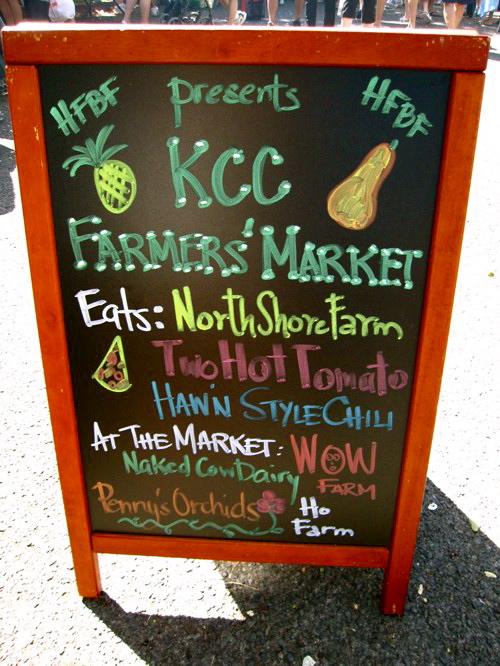 HFBF presents HFBF
KCC
FARMERS' MARKET
Eats: North Shore Farm
Two Hot Tomato
HAW'N STYLE CHILI
AT THE MARKET: WOW
Naked Cow Dairy FARM
Penny's Orchids Ho
Farm